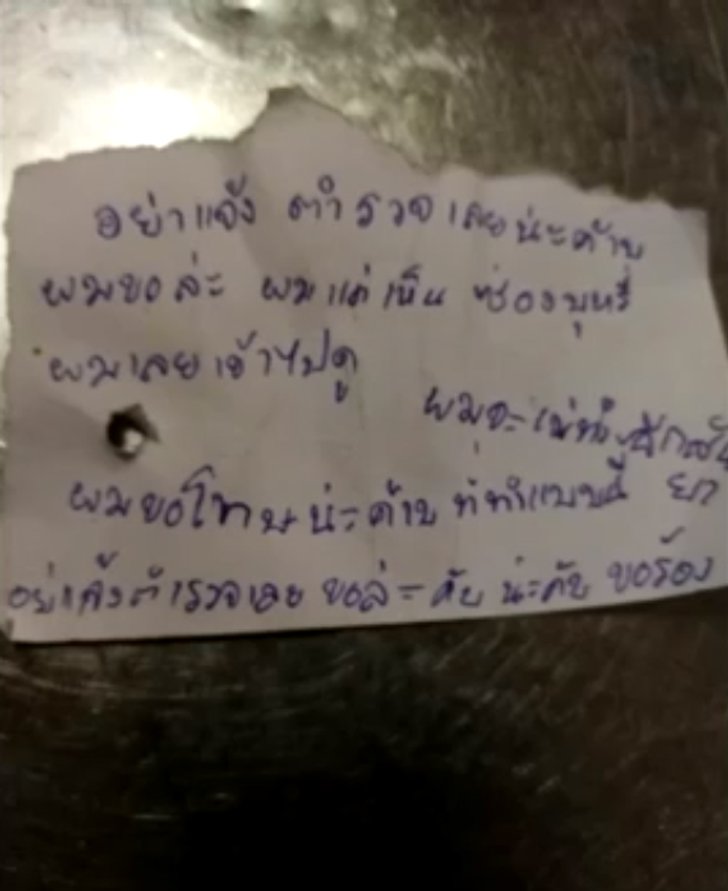 อย่าแจ้ง ตำรวจเลยน่ะค้าบ
ผมขอล่ะ ผมแค่เห็น ซองบุหรี่
ผมเลยเข้าไปดู
ผมจะไม่ทำ
ผมขอโทษน่ะค้าบ ที่ทำแบบนี้
อย่าแจ้งตำรวจเลย ขอล่ะคับ น่ะคับ ขอร้อง